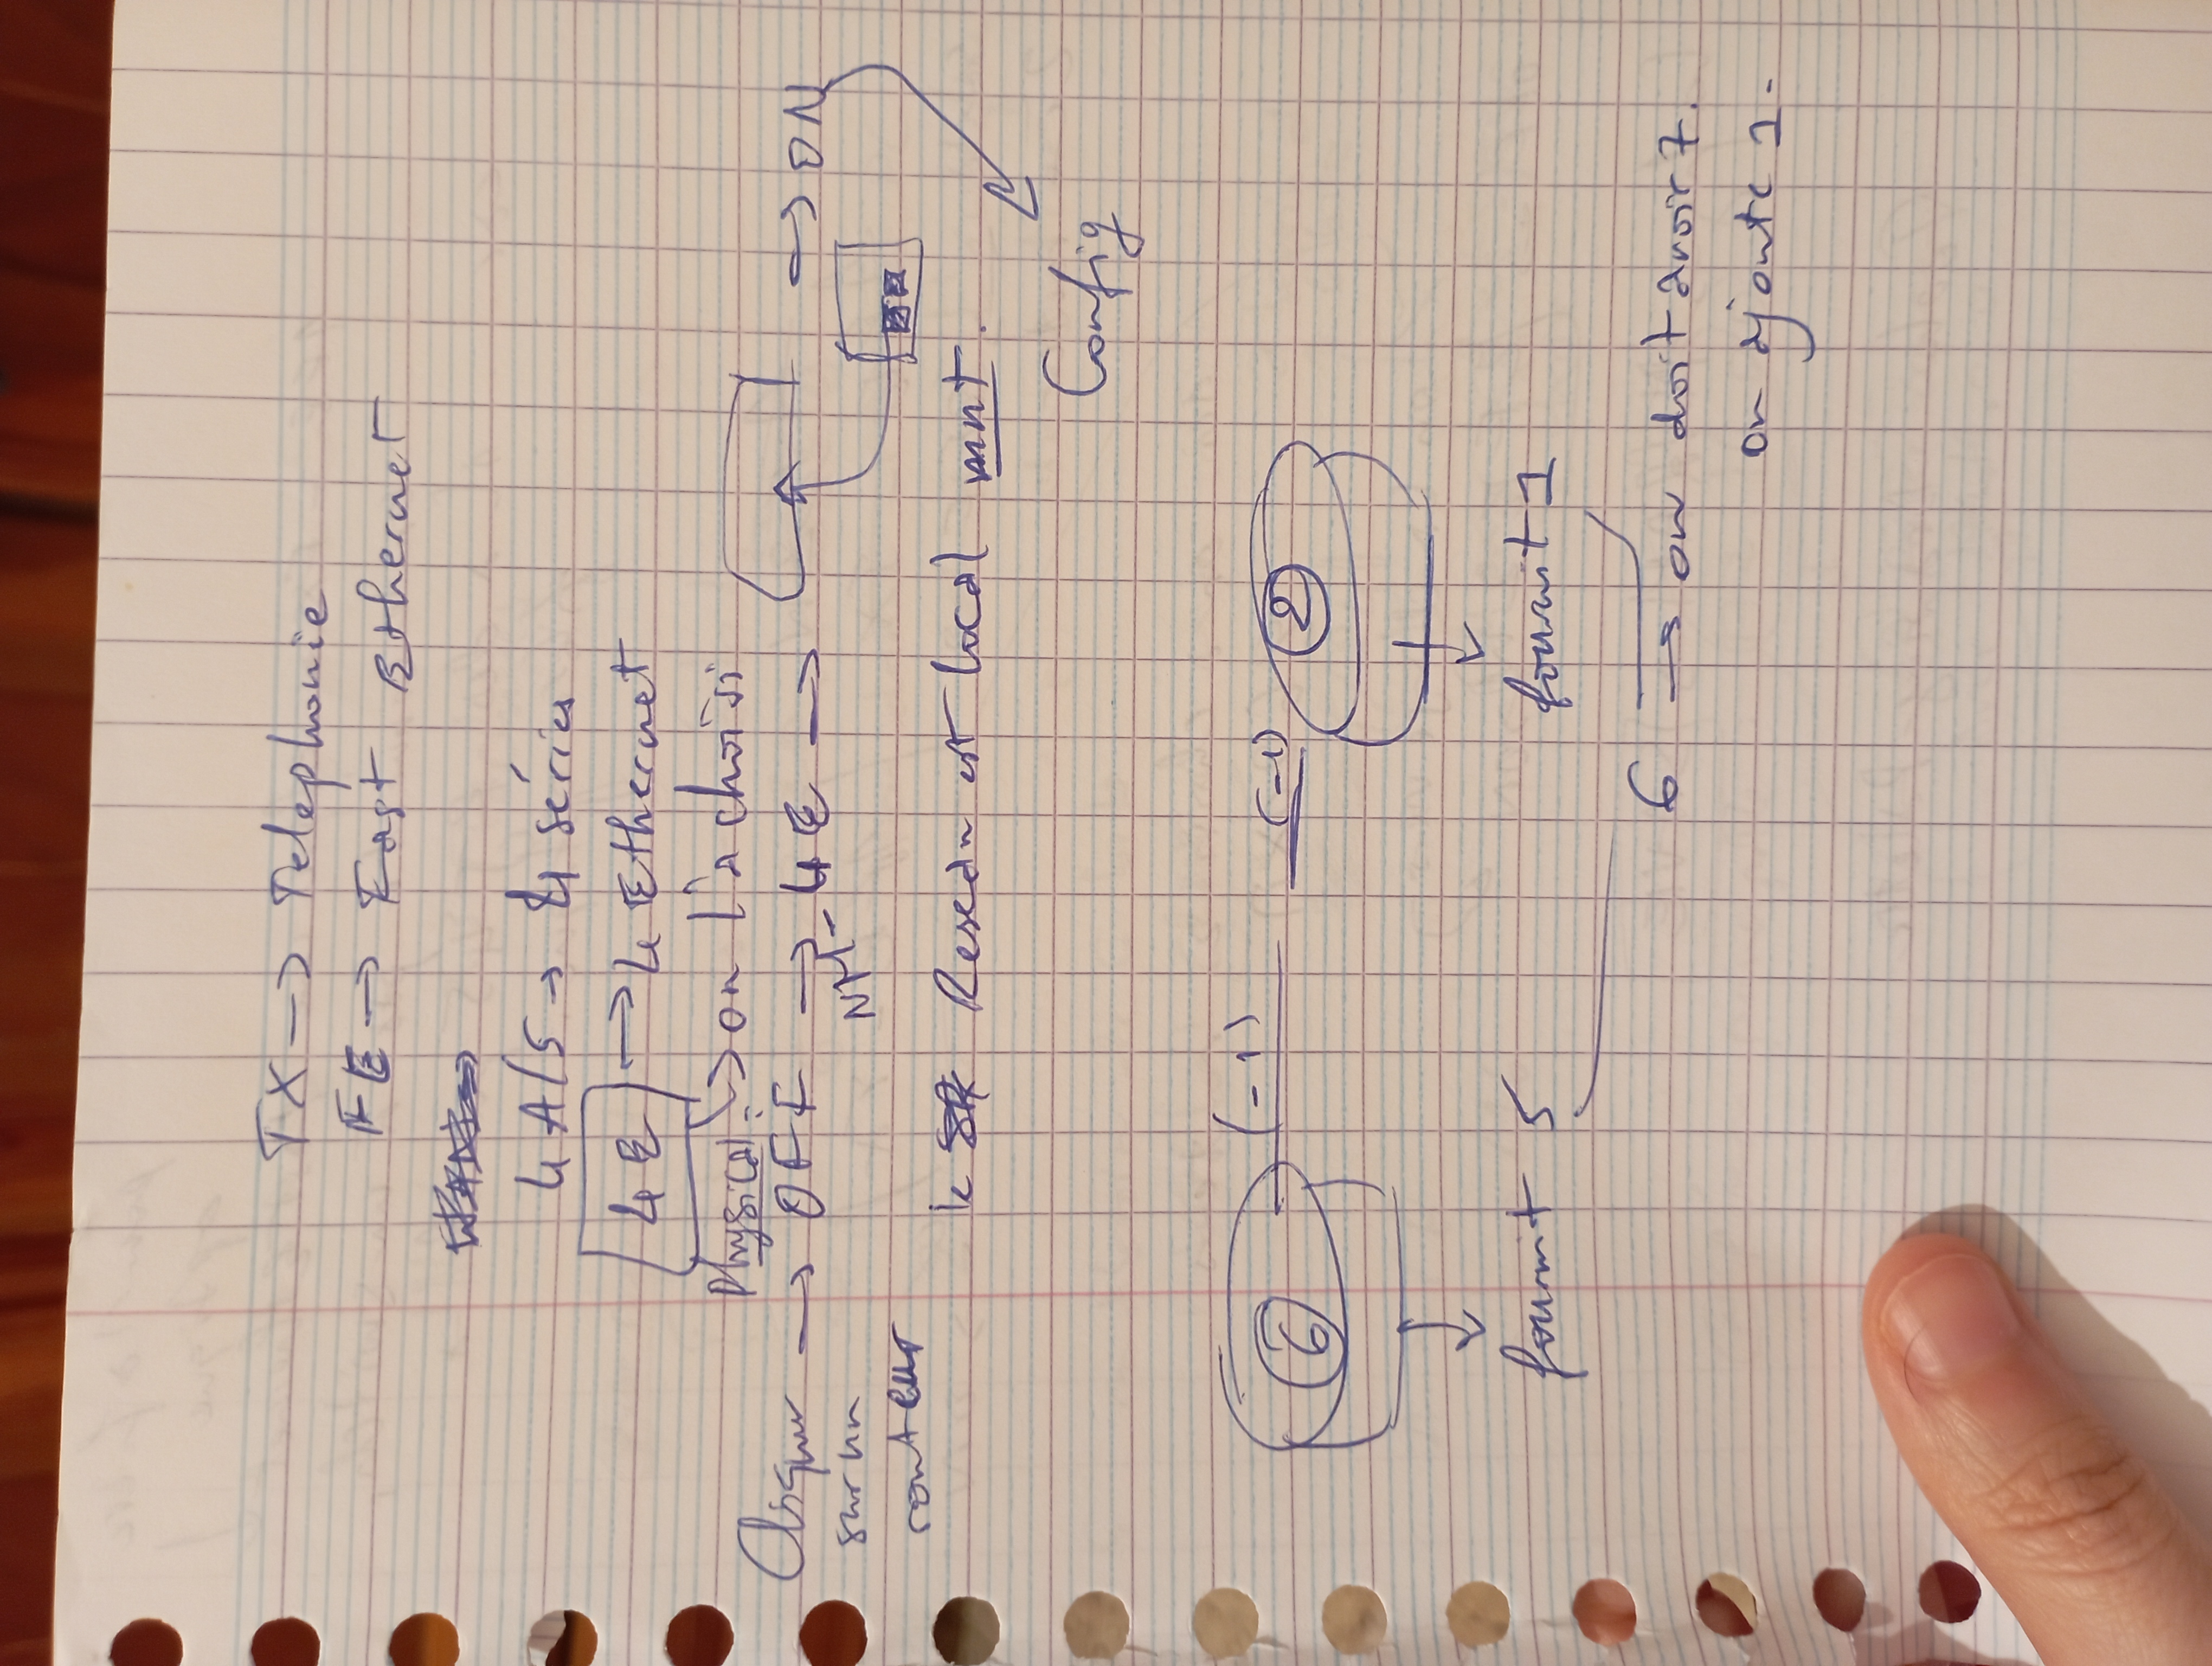 TX → Telephonie
FE → Fast Ethernet
4 A/S → 4 séries
4 E → 4 Ethernet
Physical: → on l'a choisi
Cliquer sur un routeur → OFF → NM- 4 E → → ON
le Reseau est local mnt.
Config
6 (-1) (-1) 2
fournit 5 fournit 1
6 → on doit avoir 7.
on ajoute 1.